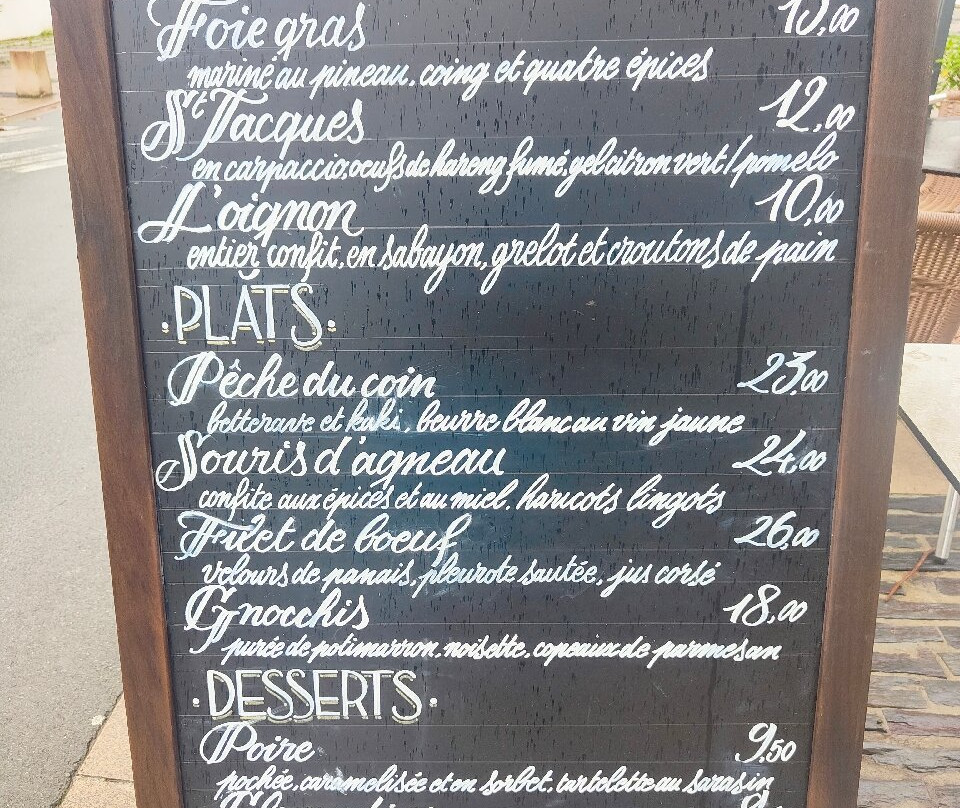 Foie gras
mariné au pineau, coing et quatre épices
St Jacques 12,00
en carpaccio, oeufs de hareng fumé, gel citron vert / pomelo
L'oignon 10,00
entier confit, en sabayon, grelot et croutons de pain
• PLÂTS •
Pêche du coin 23,00
betterave et kaki, beurre blanc au vin jaune
Souris d'agneau 24,00
confite aux épices et au miel, haricots lingots
Filet de boeuf 26,00
velours de panais, pleurote sautée, jus corsé
Gnocchis 18,00
purée de potimarron, noisette, copeaux de parmesan
• DESSERTS •
Poire 9,50
pochée, caramelisée et en sorbet, tartelette au sarasin